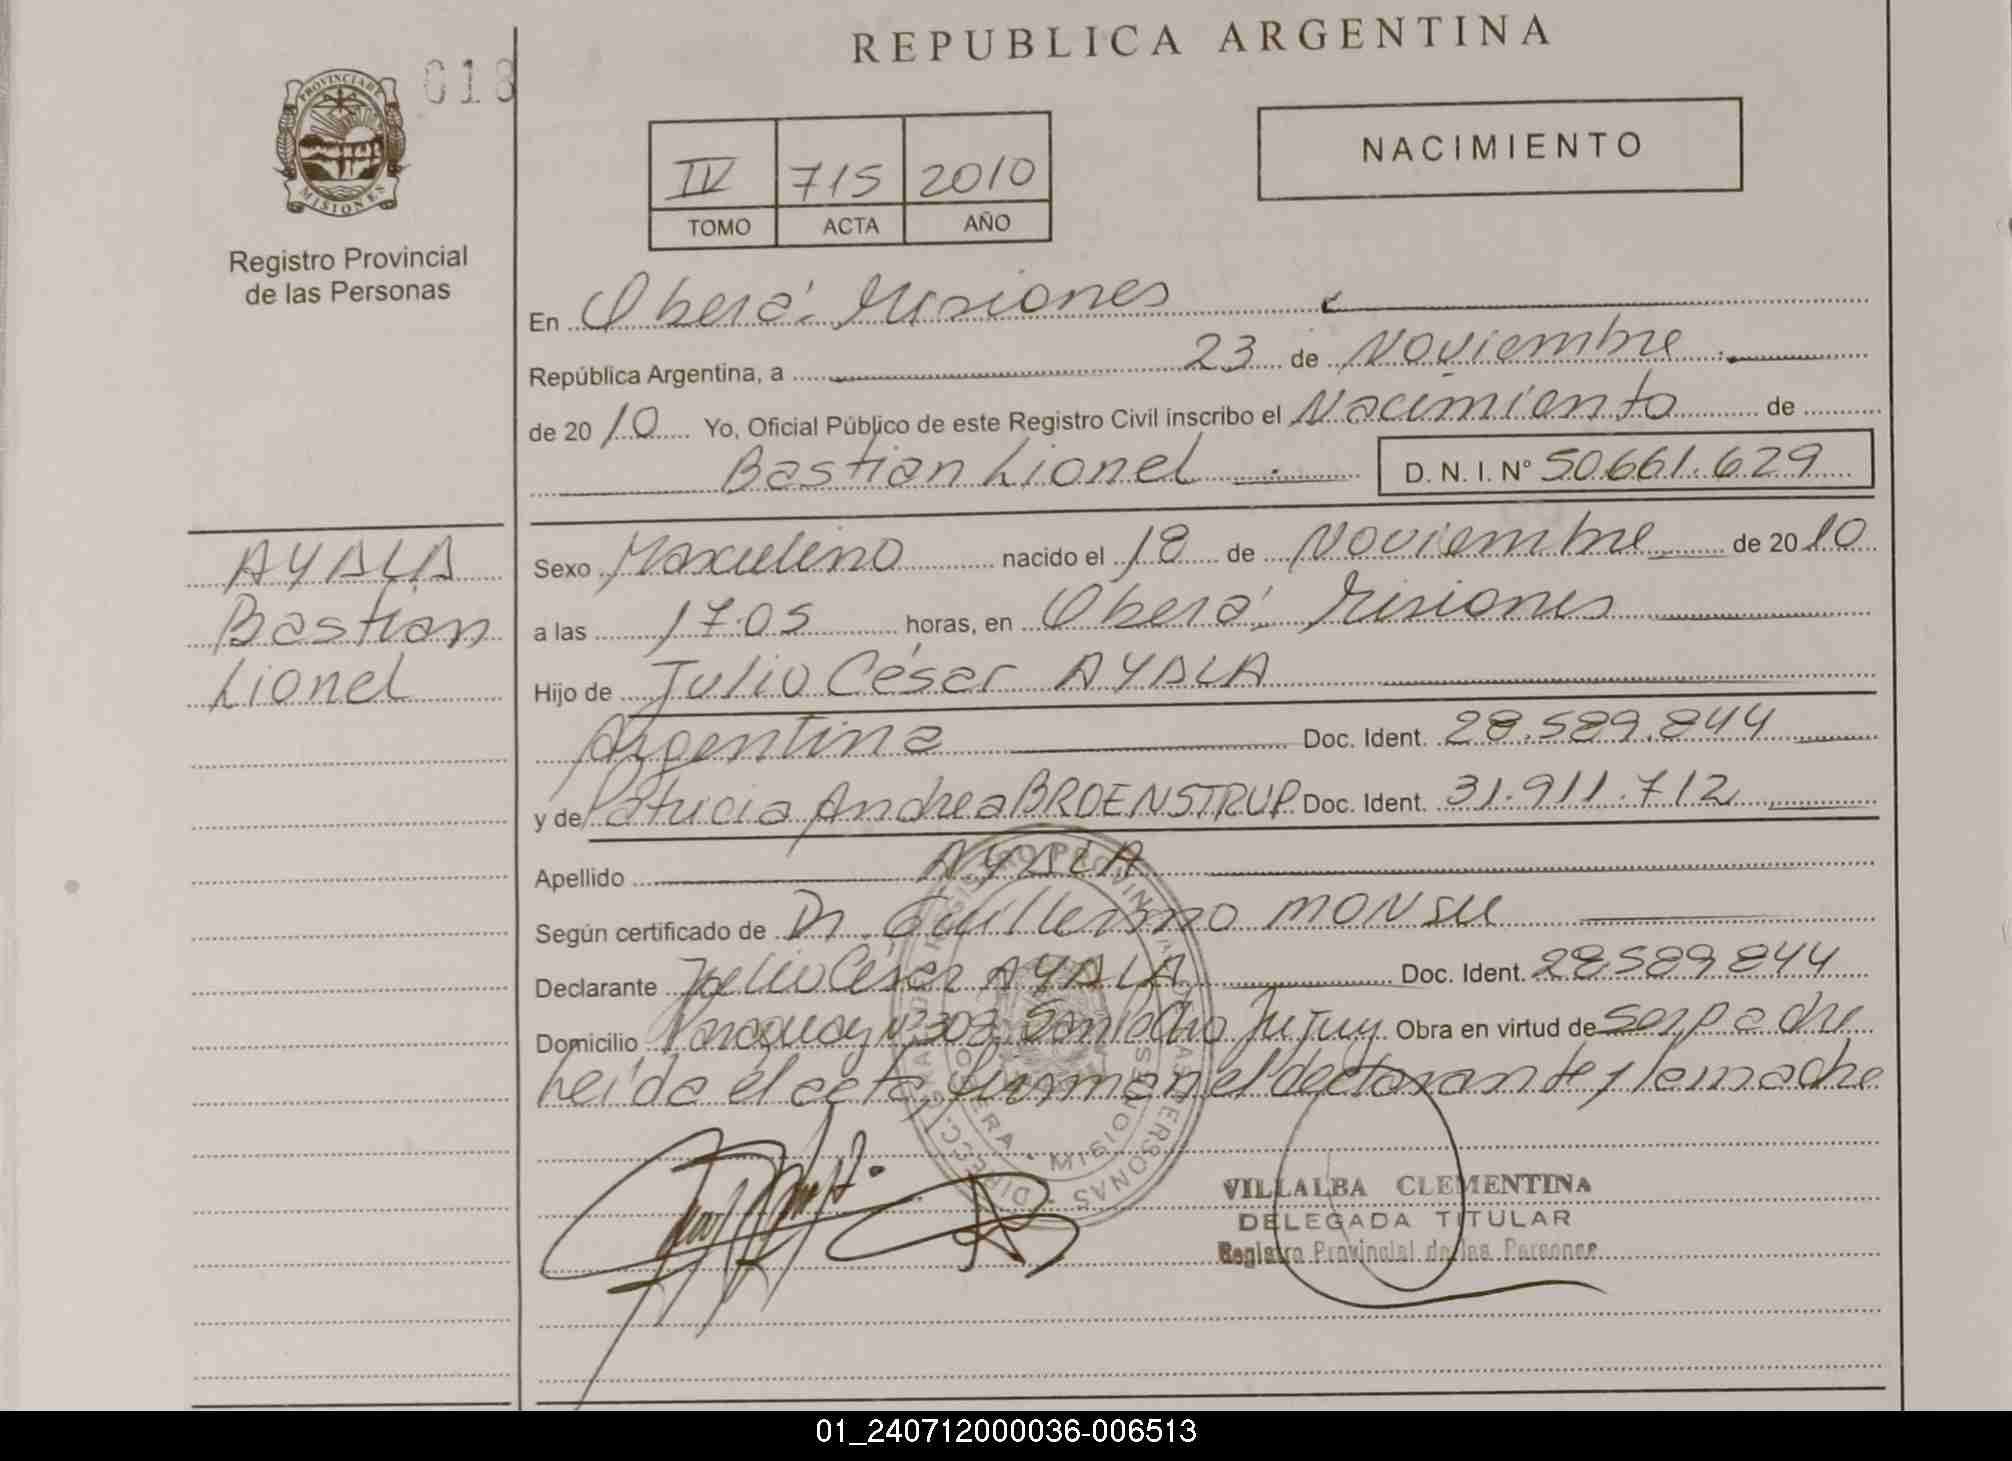 REPUBLICA ARGENTINA
018
PROVINCIA DE
MISIONES
Registro Provincial
de las Personas
IV 715 2010
TOMO ACTA AÑO
NACIMIENTO
En Oberá. Misiones
República Argentina, a 23 de Noviembre
de 2010 Yo, Oficial Público de este Registro Civil inscribo el Nacimiento de
Bastian Lionel D. N. I. N° 50.661.629
AYALA
Bastian
Lionel
Sexo Masculino nacido el 18 de Noviembre de 2010
a las 17.05 horas, en Oberá, Misiones
Hijo de Julio César AYALA
Argentina Doc. Ident. 28.589.844
y de Patricia Andrea BROENSTRUP Doc. Ident. 31.911.712
Apellido AYALA
Según certificado de Dr. Guillermo
Declarante Julio César AYALA Doc. Ident. 28.589.844
Domicilio Paraguay N° 303 San Pedro Jujuy Obra en virtud de ser padre
Leída el acta, firman el declarante y la madre
OBERA - MISIONES
VILLALBA CLEMENTINA
DELEGADA TITULAR
Registro Provincial de las Personas
01_240712000036-006513